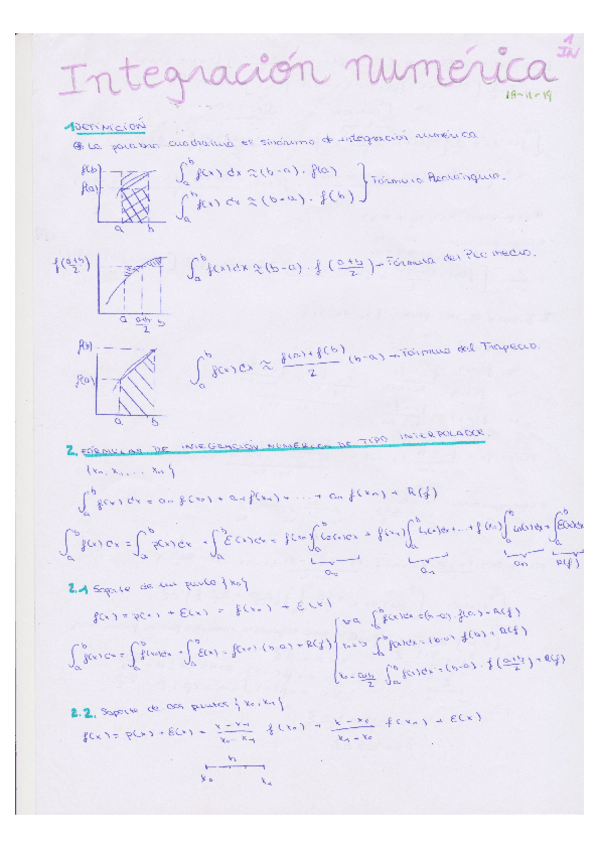 1 IN
Integración numérica
18-11-19
1 DEFINICIÓN
La palabra cuadratura es sinónimo de integración numérica.
f(b) f(a) a b
∫_a^b f(x) dx ≈ (b-a) · f(a)
∫_a^b f(x) dx ≈ (b-a) · f(b)
Fórmula Rectángulo.
f(a+b/2) a a+b/2 b
∫_a^b f(x) dx ≈ (b-a) · f(a+b/2) → Fórmula del Pto medio.
f(b) f(a) a b
∫_a^b f(x) dx ≈ (f(a)+f(b))/2 (b-a) → Fórmula del Trapecio.
2. FÓRMULAS DE INTEGRACIÓN NUMÉRICA DE TIPO INTERPOLADOR.
∫_a^b f(x) dx = a₀ f(x₀) + a₁ f(x₁) + ... + aₙ f(xₙ) + R(f)
∫_a^b f(x) dx = ∫_a^b p(x) dx + ∫_a^b E(x) dx =
R(f)
2.1 Soporte de un punto {x₀}
f(x) = p(x) + E(x) = f(x₀) + E(x)
∫_a^b f(x) dx = ∫_a^b f(x₀) dx + ∫_a^b E(x) = f(x₀) (b-a) + R(f)
∫_a^b f(x) dx = (b-a) f(a) + R(f)
∫_a^b f(x) dx = (b-a) f(b) + R(f)
∫_a^b f(x) dx = (b-a) · f(a+b/2) + R(f)
2.2. Soporte de dos puntos {x₀, x₁}
f(x) = p(x) + E(x) = (x-x₁)/(x₀-x₁) f(x₀) + (x-x₀)/(x₁-x₀) f(x₁) + E(x)
x₀ x₁